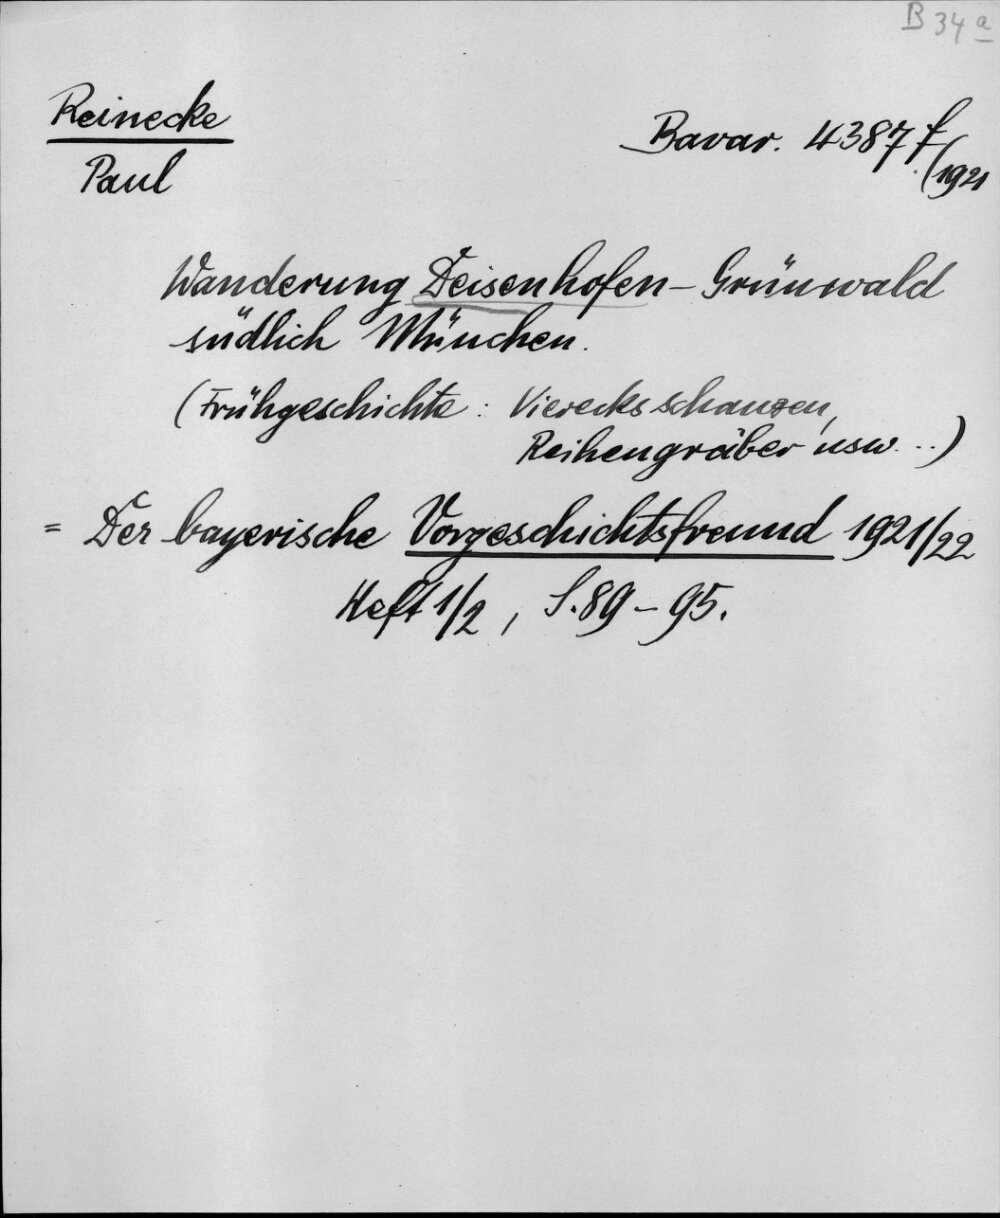 B 34 a
Reinecke
Paul
Bavar. 4387 f
(1921
Wanderung Deisenhofen – Grünwald
südlich München.
(Frühgeschichte: Vierecksschanzen,
Reihengräber usw...)
= Der bayerische Vorgeschichtsfreund 1921/22
Heft 1/2, S. 89 – 95.